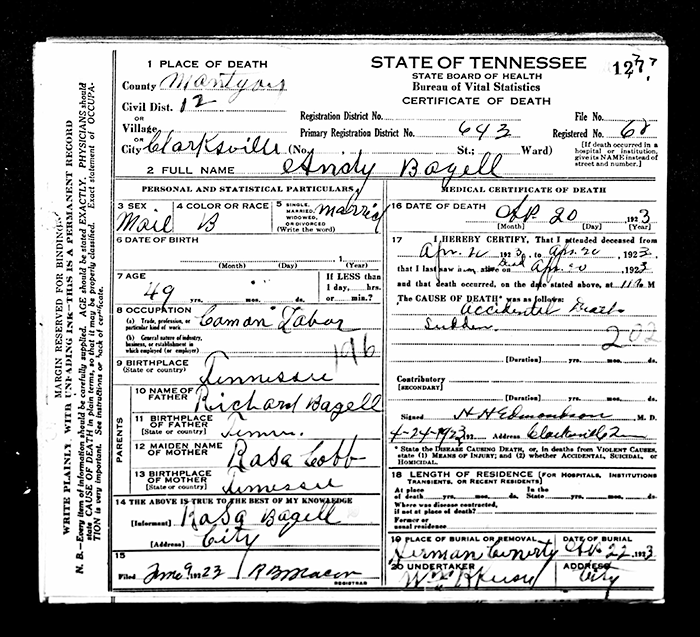 MARGIN RESERVED FOR BINDING
WRITE PLAINLY, WITH UNFADING INK—THIS IS A PERMANENT RECORD
N. B.—Every item of information should be carefully supplied. AGE should be stated EXACTLY. PHYSICIANS should
state CAUSE OF DEATH in plain terms, so that it may be properly classified. Exact statement of OCCUPA-
TION is very important. See instructions on back of certificate.
1 PLACE OF DEATH
County
Civil Dist. 12
OR
Village
OR
City Clarksville (No. St.; Ward)
STATE OF TENNESSEE
STATE BOARD OF HEALTH
Bureau of Vital Statistics
CERTIFICATE OF DEATH
Registration District No. File No.
Primary Registration District No. 643 Registered No. 68
[If death occurred in a
hospital or institution,
give its NAME instead of
street and number.]
2 FULL NAME Andy Bagell
PERSONAL AND STATISTICAL PARTICULARS
3 SEX
Mail
4 COLOR OR RACE
B
5 SINGLE,
MARRIED,
WIDOWED,
OR DIVORCED
(Write the word)
6 DATE OF BIRTH
(Month) (Day) (Year)
7 AGE
49 yrs. mos. ds.
If LESS than
1 day, hrs.
or min.?
8 OCCUPATION
(a) Trade, profession, or
particular kind of work
Coman Labor
(b) General nature of industry,
business, or establishment in
which employed (or employer)
196
9 BIRTHPLACE
(State or country)
Tennessee
PARENTS
10 NAME OF
FATHER
Richard Bagell
11 BIRTHPLACE
OF FATHER
(State or country)
Tenn.
12 MAIDEN NAME
OF MOTHER
Rasa Cobb
13 BIRTHPLACE
OF MOTHER
(State or country)
14 THE ABOVE IS TRUE TO THE BEST OF MY KNOWLEDGE
(Informant) Rasa Bagell
(Address) City
15
Filed June 9 1923
REGISTRAR
MEDICAL CERTIFICATE OF DEATH
16 DATE OF DEATH
Ap. 20 1923
(Month) (Day) (Year)
17 I HEREBY CERTIFY, That I attended deceased from
1923, to Apr. 20, 1923
that I last saw alive on 1923
and that death occurred, on the date stated above, at M
The CAUSE OF DEATH* was as follows:
Accidental Death
Sudden
202
(Duration) yrs. mos. ds.
Contributory
(SECONDARY)
(Duration) yrs. mos. ds.
Signed H H Edmondson M. D.
4-24-1923 Address
* State the DISEASE CAUSING DEATH, or, in deaths from VIOLENT CAUSES,
state (1) MEANS OF INJURY; and (2) whether ACCIDENTAL, SUICIDAL, or
HOMICIDAL.
18 LENGTH OF RESIDENCE (FOR HOSPITALS, INSTITUTIONS
TRANSIENTS, OR RECENT RESIDENTS)
At place
of death yrs. mos. ds.
In the
State yrs. mos. ds.
Where was disease contracted,
if not at place of death?
Former or
usual residence
19 PLACE OF BURIAL OR REMOVAL
DATE OF BURIAL
Ap. 22 1923
20 UNDERTAKER
ADDRESS
City